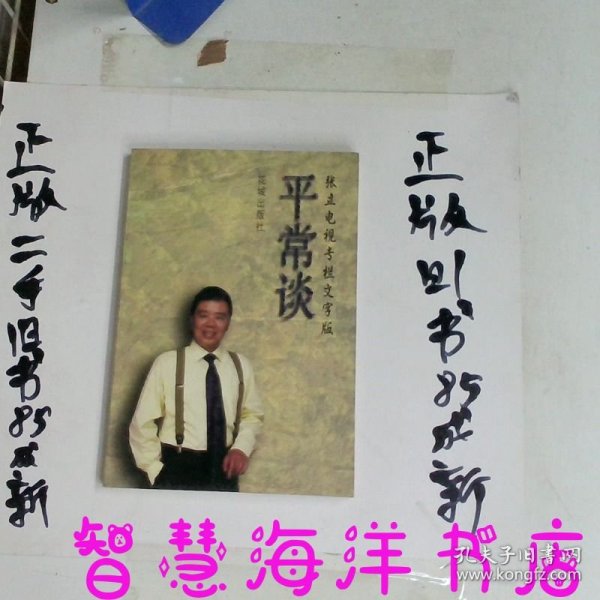 正版二手旧书85成新
张立电视专栏文字版
平常谈
花城出版社
正版旧书85成新
智慧海洋书店
孔夫子旧书网
www.kongfz.com